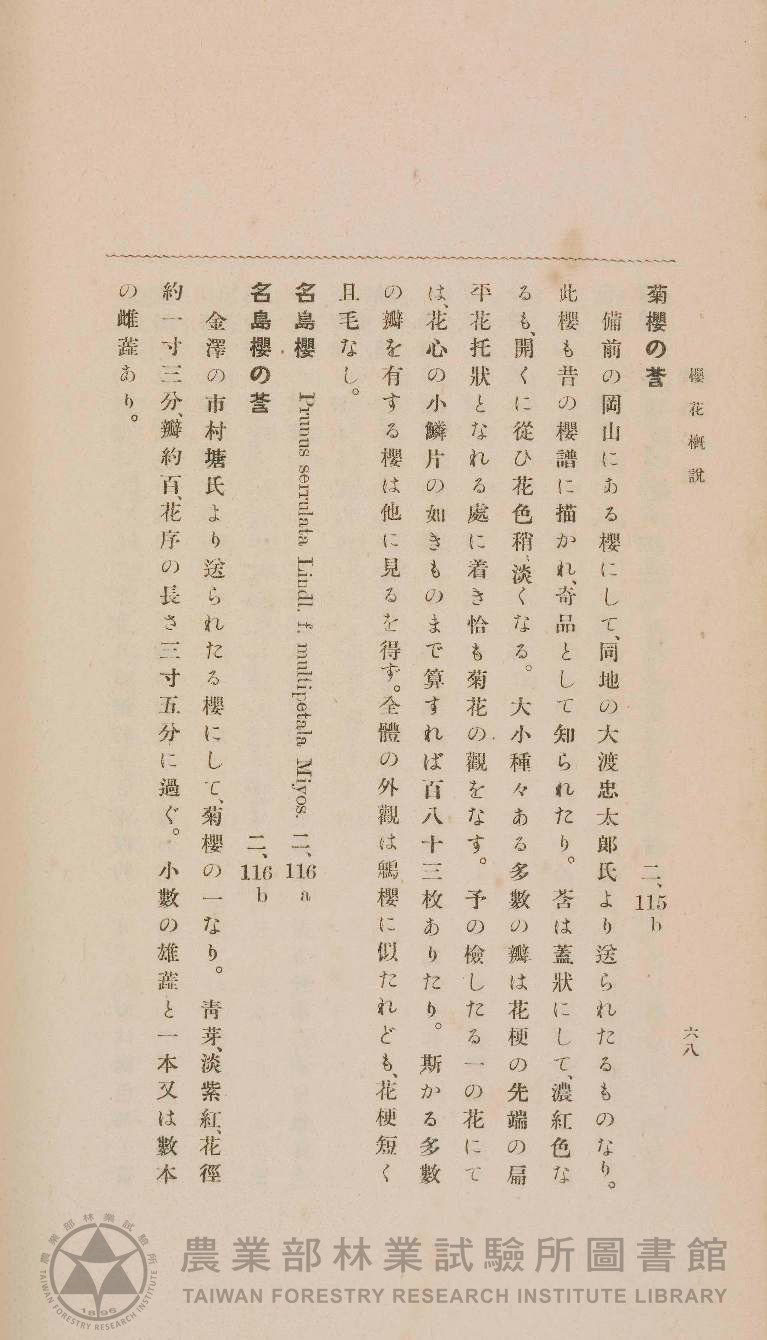 櫻花槪說
六八
菊櫻の莟 二、115b
備前の岡山にある櫻にして、同地の大渡忠太郎氏より送られたるものなり。
此櫻も昔の櫻譜に描かれ、奇品として知られたり。 莟は蓋狀にして、濃紅色な
るも、開くに從ひ花色稍〻淡くなる。 大小種々ある多數の瓣は花梗の先端の扁
平花托狀となれる處に着き恰も菊花の觀をなす。 予の檢したる一の花にて
は、花心の小鱗片の如きものまで算すれば百八十三枚ありたり。 斯かる多數
の瓣を有する櫻は他に見るを得ず。全體の外觀は鵯櫻に似たれども、花梗短く
且毛なし。
名島櫻 Prunus serrulata Lindl. f. multipetala Miyos. 二、116a
名島櫻の莟 二、116b
金澤の市村塘氏より送られたる櫻にして、菊櫻の一なり。 靑芽、淡紫紅、花徑
約一寸三分、瓣約百、花序の長さ三寸五分に過ぐ。 小數の雄蕋と一本又は數本
の雌蕋あり。
農業部林業試驗所圖書館
TAIWAN FORESTRY RESEARCH INSTITUTE LIBRARY
農業部林業試驗所
TAIWAN FORESTRY RESEARCH INSTITUTE
1896